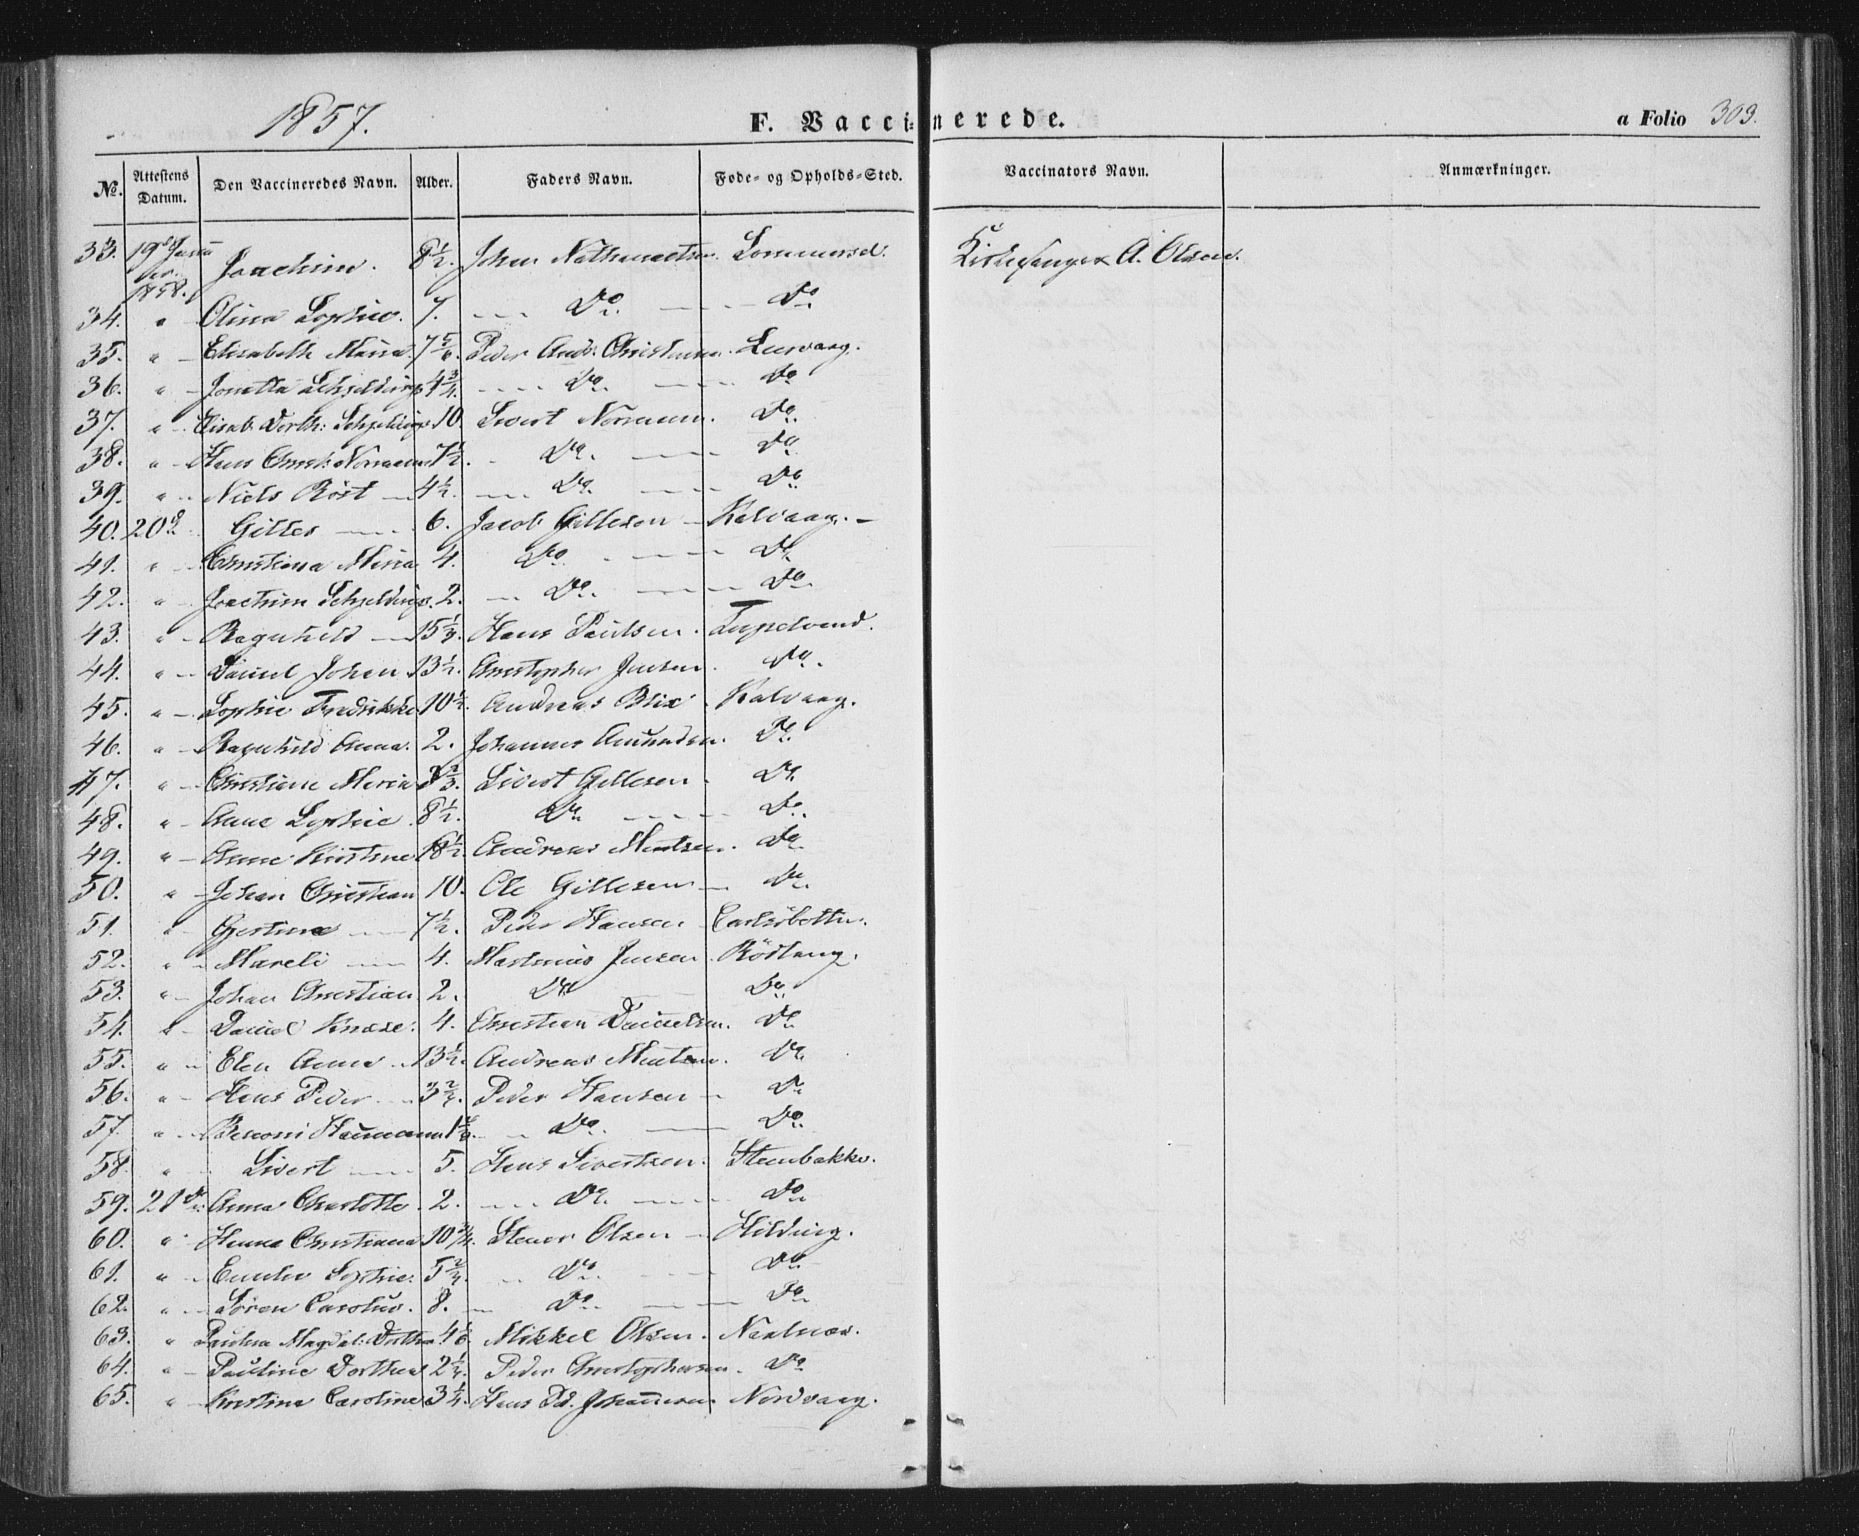 1857.
F. Vaccinerede.
a Folio 303.
No. Attestens Datum. Den Vaccineredes Navn. Alder. Faders Navn. Føde- og Opholds-Sted. Vaccinators Navn. Anmærkninger.
33. 19 1858. Joachim. 8½. Johan Nathanaelsen. Sommersel. Kirkesanger A. Olsen.
34. " Olina Sophie. 7. Do Do
35. " Elisabeth Maria. 7 5/6. Peder Andr. Christensen. Leervaag.
36. " Jonetta Schjelderup 4¾. Do. Do
37. " Elisab: Dorth: Schjelderup 10. Sivert Normann. Do.
38. " Hans Christ: Normann 7½. Do. Do.
39. " Niels Röst 4½. Do. Do
40. 20d Gilles 6. Jacob Gillesen Kalvaag.
41. " Christiana Maria 4. Do. Do.
42. " Joachim Schjelderup. 2. Do. Do.
43. " Ragnhild 15⅓. Hans Paulsen.
44. " Daniel Johan 13½. Christopher Jensen. Do.
45. " Sophie Fredrikke 10½. Andreas Blix Kalvaag.
46. " Ragnhild Anna. 2. Johannes Amundsen. Do.
47. " Christiane Maria Sivert Gillesen Do.
48. " Anne Sophie 8½. Do Do.
49. " Anne Kirstine Andreas Do.
50. " Johan Christian 10. Ole Gillesen Do.
51. " Gjertine 7½. Peder Hansen
52. " Mareli 4. Martinus Jensen Rötang.
53. " Johan Christian 2. Do Do.
54. " Daniel 4. Christian Danielsen. Do.
55. " Elen Anna 13½. Andreas Do.
56. " Hans Peder Peder Hansen Do
57. " Benoni Do. Do.
58. " Sivert 5. Hans Sivertsen. Steenbakke.
59. 21d. Anna Charlotte. 2. Do. Do
60. " Hanna Christiana 10¾. Stener Olsen Hilding.
61. " Sophie. Do. Do.
62. " Sören Carolus. 8. Do. Do
63. " Paulina Magdal: Dorthea Mikkel Olsen.
64. " Pauline Dorthea Peder Christophersen. Do.
65. " Kirstine Caroline 3¼. Hans Pd. Johannesen. Nordvaag.